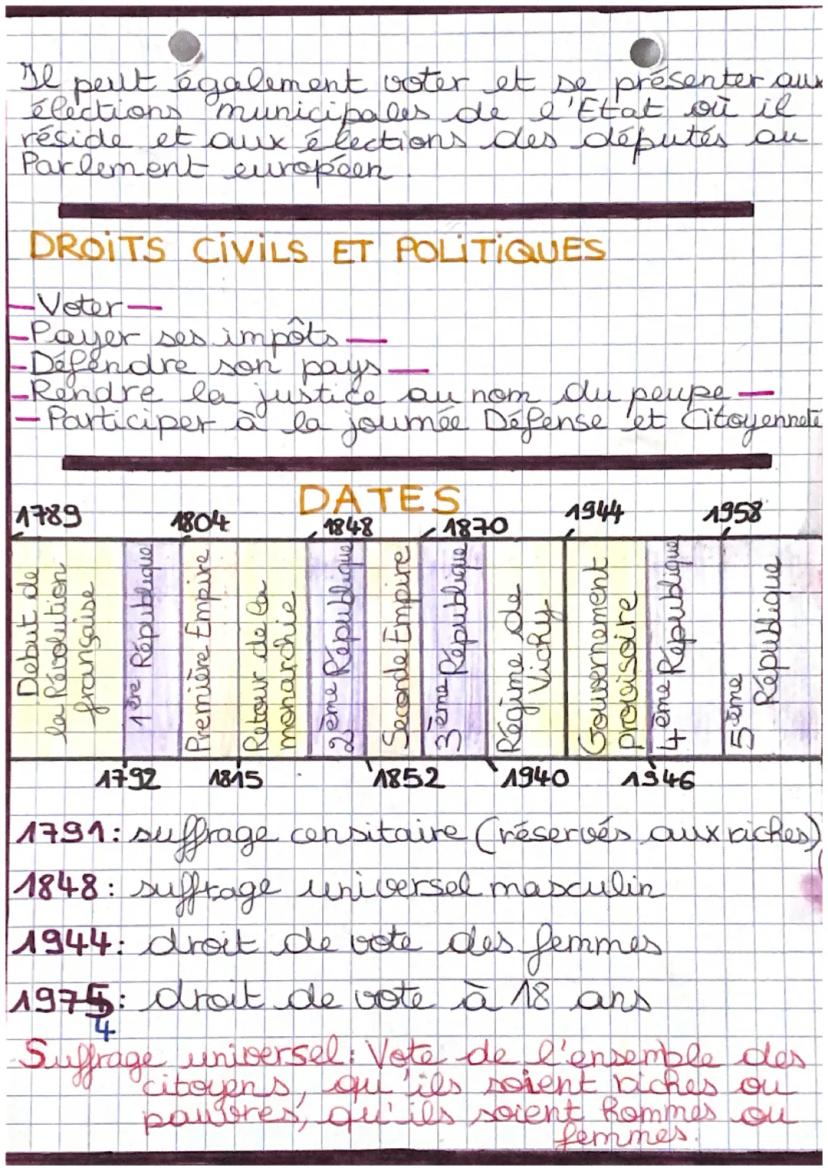 Il peut également voter et se présenter aux
élections municipales de l'Etat où il
réside et aux élections des députés au
Parlement européen.
DROITS CIVILS ET POLITIQUES
-Voter-
-Payer ses impôts-
-Défendre son pays-
-Rendre la justice au nom du peupe-
-Participer à la journée Défense et Citoyenneté
DATES
1789 1804 1848 1870 1944 1958
Début de
la Révolution
française
1ère République
Première Empire
Retour de la
monarchie
2ème République
Seconde Empire
3ème République
Régime de
Vichy
Gouvernement
provisoire
4ème République
5ème
République
1792 1815 1852 1940 1946
1791: suffrage censitaire (réservés aux riches)
1848: suffrage universel masculin
1944: droit de vote des femmes
1975: droit de vote à 18 ans
4
Suffrage universel: Vote de l'ensemble des
citoyens, qu'ils soient riches ou
pauvres, qu'ils soient hommes ou
femmes.